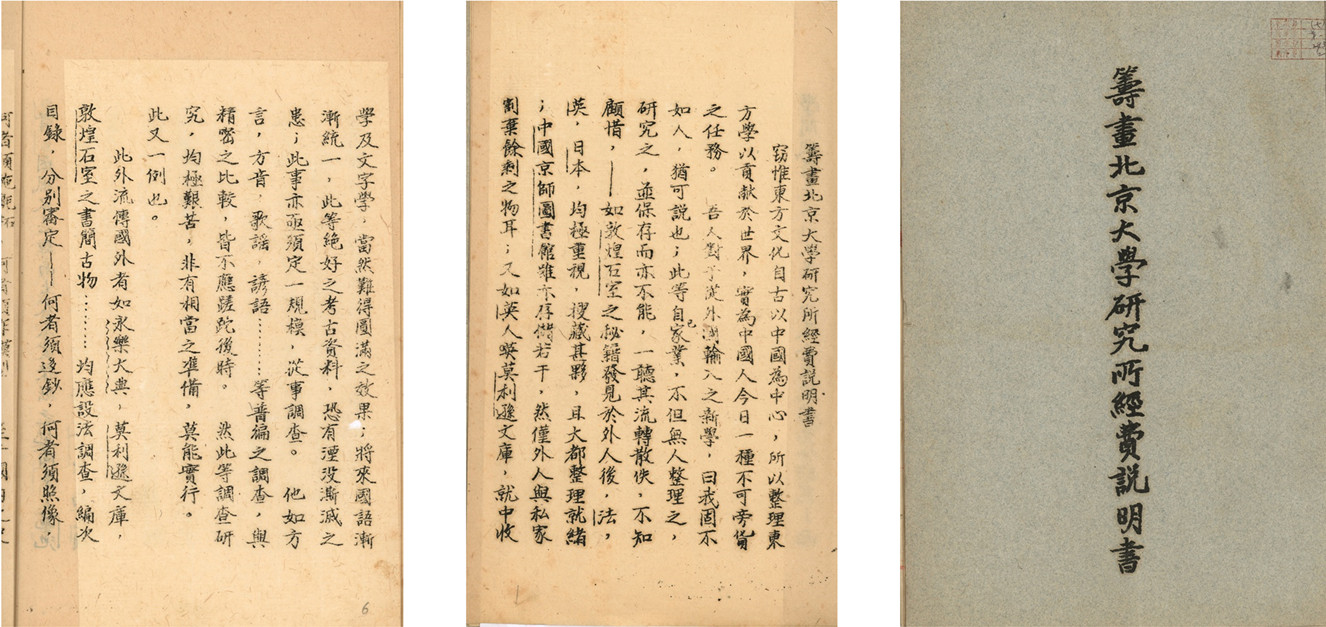 籌畫北京大學研究所經費説明書
籌畫北京大學研究所經費説明書
窃惟東方文化自古以中國為中心，所以整理東
方學以貢献於世界，實為中國人今日一種不可旁貸
之任務。吾人對于從外國輸入之新學，曰我固不
如人，猶可説也；此等自己家業，不但無人整理之，
研究之，並保存而亦不能，一聽其流轉散佚，不知
顧惜，——如敦煌石室之秘籍發見於外人後，法，
英，日本，均極重視，搜藏甚夥，且大都整理就緒
；中國京師圖書館雖亦存儲若干，然僅外人與私家
割棄餘剩之物耳；又如英人莫利遜文庫，就中收
學及文字學，當然難得圓滿之效果；將來國語漸
漸統一，此等絕好之考古資料，恐有湮没澌滅之
患；此事亦亟須定一規模，從事調查。他如方
言，方音，歌謡，諺語………等普遍之調查，與
精密之比較，皆不應蹉跎後時。然此等調查研
究，均極艱苦，非有相當之準備，莫能實行。
此又一例也。
此外流傳國外者如永樂大典，莫利遜文庫，
敦煌石室之書簡古物………均應設法調查，編次
目錄，分別審定——何者須逡鈔，何者須照像，
6